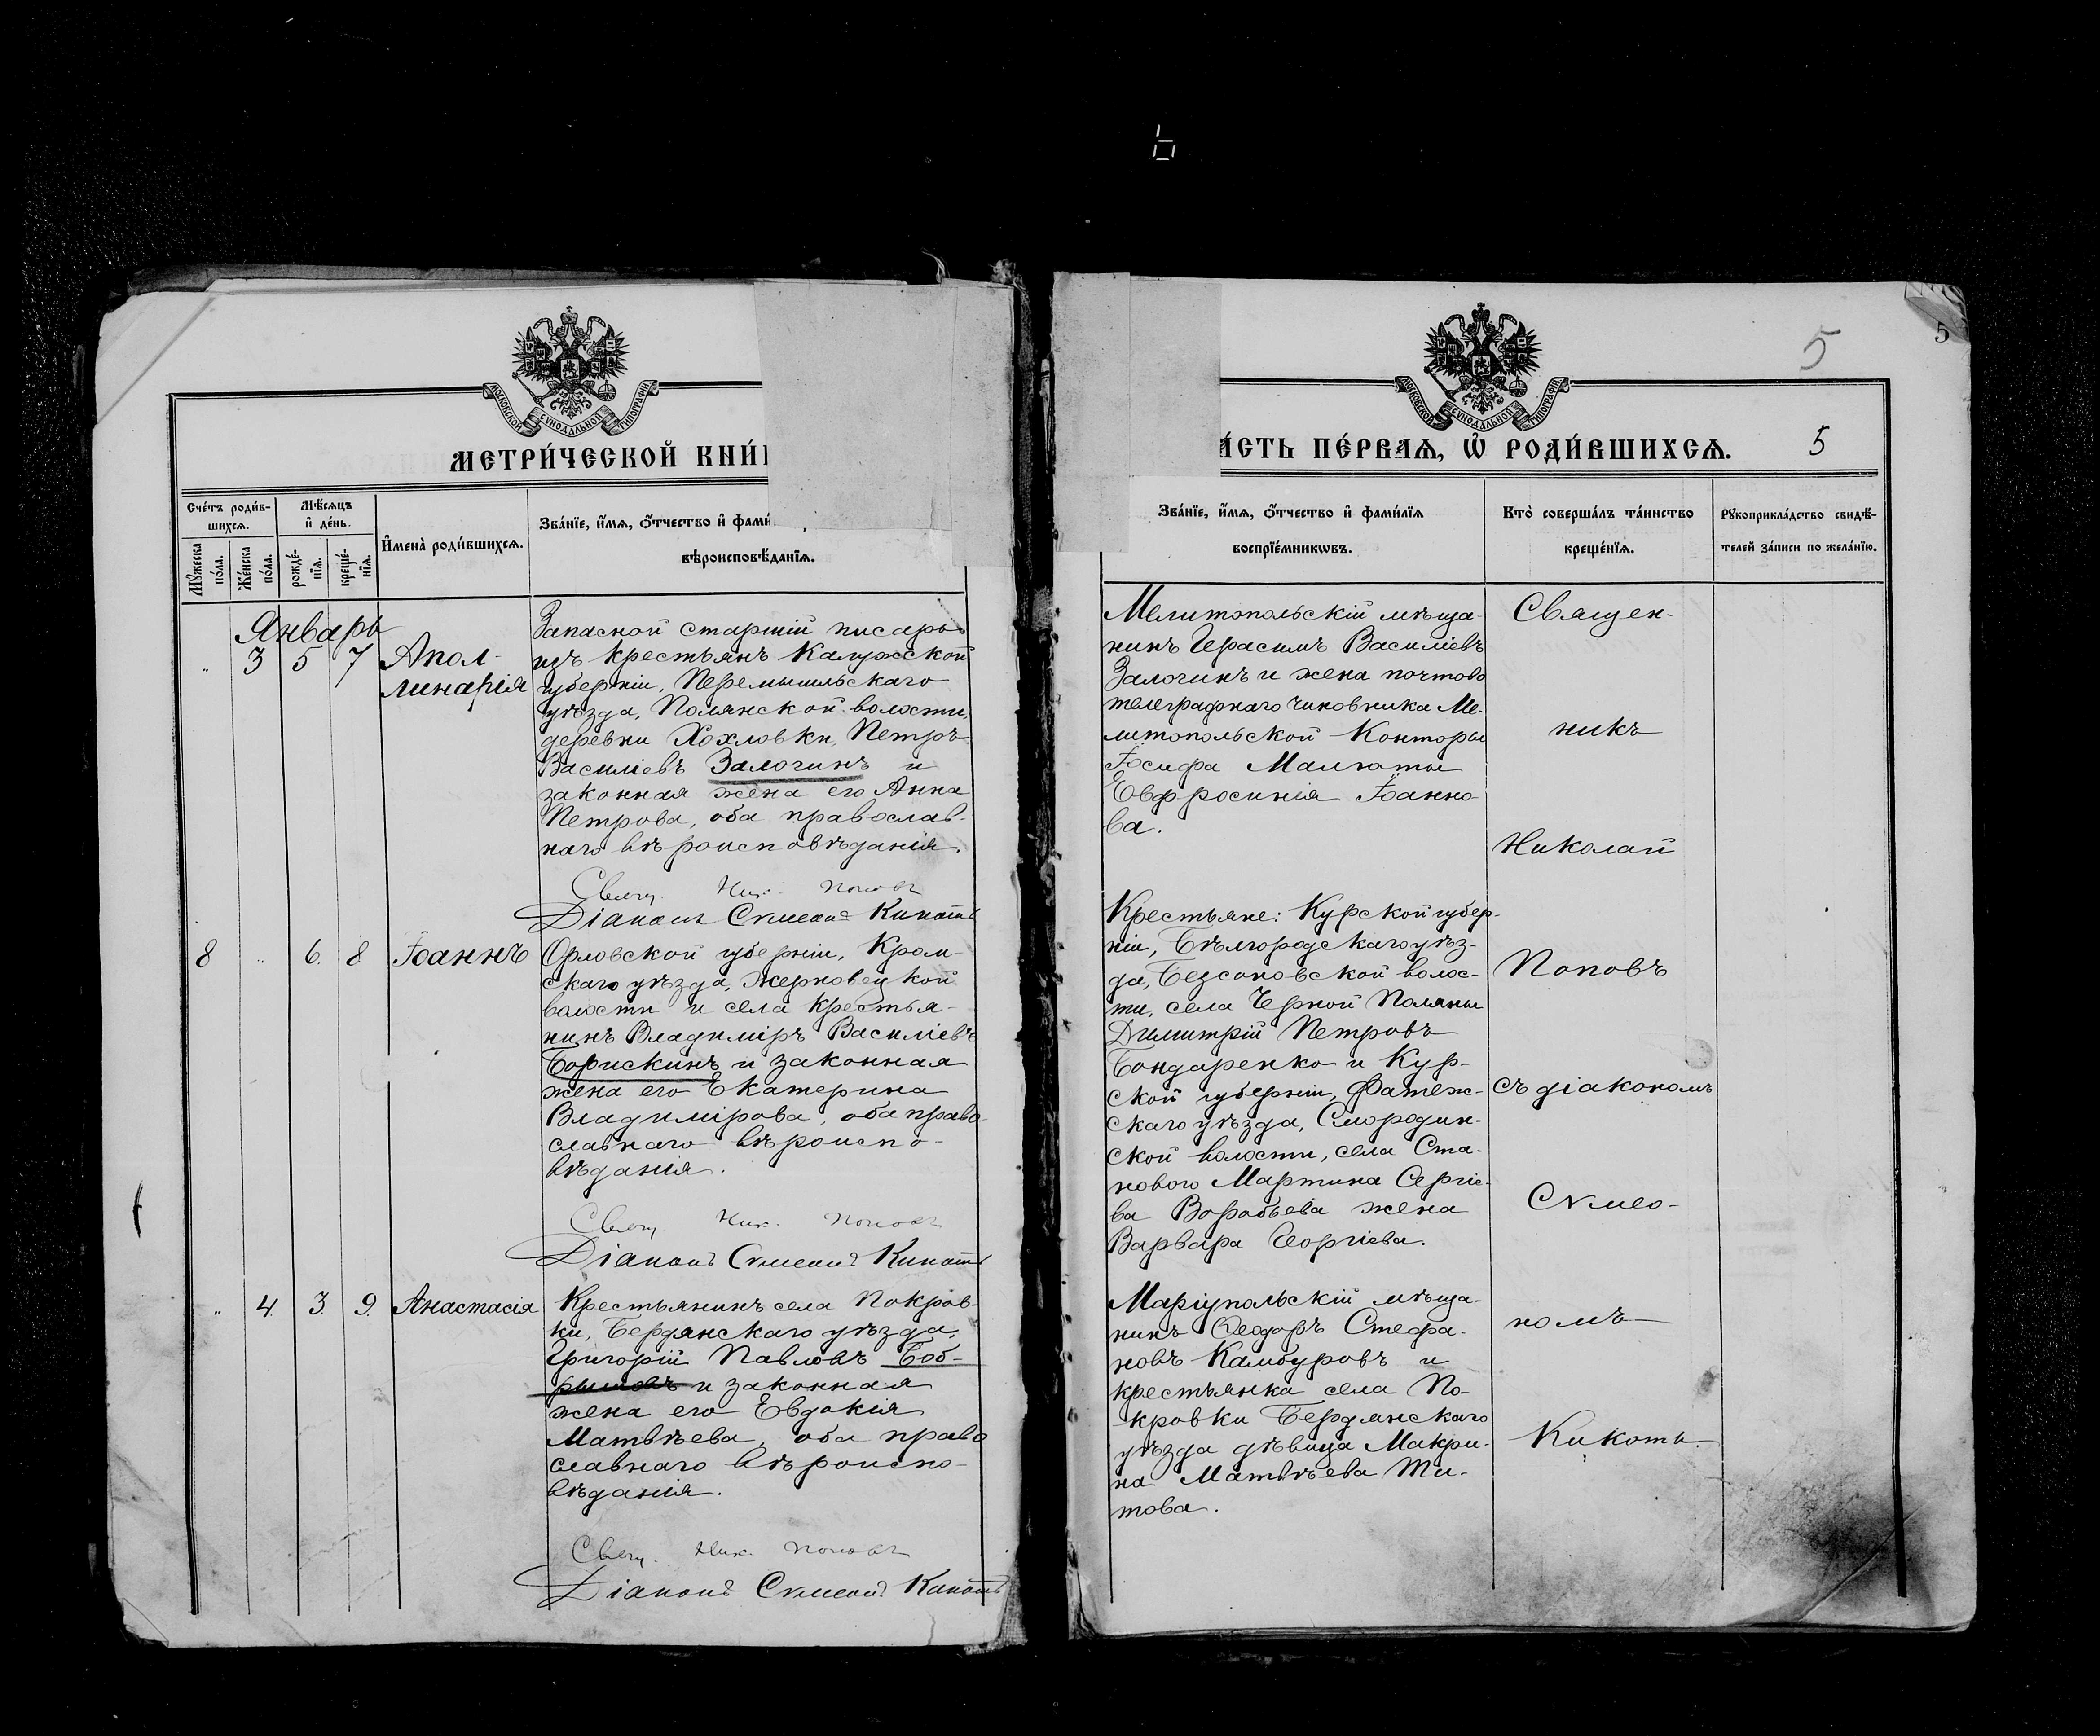 6
МОСКОВСКОЙ СѴНОДАЛЬНОЙ ТИПОГРАФІИ
МЕТРИ́ЧЕСКОЙ КНИ́
Сче́тъ роди́в-
шихсѧ.
Мꙋ́жеска
по́ла.
Же́нска
по́ла.
Мѣ́сѧцъ
и҆ де́нь.
рожде́-
нїѧ.
креще́-
нїѧ.
И҆мена̀ роди́вшихсѧ.
Зва́нїе, и҆́мѧ, ѻ҆́тчество и҆ фами́
вѣроисповѣ́данїѧ.
Январь
" 3 5 7
Апол-
линарія
Запасной старшій писарь
изъ крестьянъ Калужской
губерніи, Перемышльскаго
уѣзда, Полянской волости,
деревни Хохловки, Петръ
Василіевъ Залогинъ и
законная жена его Анна
Петрова, оба православ-
наго вѣроисповѣданія.
Свящ. Ник. Поповъ
Діаконъ Сѵмеонъ Кикоть
8 " 6. 8
Іоаннъ
Орловской губерніи, Кром-
скаго уѣзда, Жерновецкой
волости и села крестья-
нинъ Владиміръ Василіевъ
Борискинъ и законная
жена его Екатерина
Владимірова, оба право
славнаго вѣроиспо-
вѣданія.
Свящ. Ник. Поповъ
Діаконъ Сѵмеонъ Кикоть
" 4. 3 9.
Анастасія
Крестьянинъ села Покров-
ки, Бердянскаго уѣзда,
Григорій Павловъ Боб-
и законная
жена его Евдокія
Матвѣева, оба право
славнаго вѣроиспо-
вѣданія.
Свящ. Ник. Поповъ
Діаконъ Сѵмеонъ Кикоть
5
5
МОСКОВСКОЙ СѴНОДАЛЬНОЙ ТИПОГРАФІИ
А́СТЬ ПЕ́РВАѦ, Ѽ РОДИ́ВШИХСѦ.
5
Зва́нїе, и҆́мѧ, ѻ҆́тчество и҆ фами́лїѧ
воспрїе́мникѡвъ.
Кто̀ соверша́лъ та́инство
креще́нїѧ.
Рꙋкоприкла́дство свидѣ́-
телей за́писи по жела́нїю.
Мелитопольскій мѣща-
нинъ Герасимъ Василіевъ
Залогинъ и жена почтово
телеграфнаго чиновника Ме-
литопольской Конторы
Іосифа Малюты
Евфросинія Іоанно-
ва.
Крестьяне: Курской губер-
ніи, Бѣлгородскаго уѣз-
да, Безсоновской волос-
ти, села Черной Поляны
Димитрій Петровъ
Бондаренко и Кур-
ской губерніи, Фатеж-
скаго уѣзда, Смородин-
ской волости, села Ста-
нового Мартина Сергіе-
ва Воробьева жена
Варвара Георгіева.
Маріупольскій мѣща-
нинъ Ѳеодоръ Стефа-
новъ Камбуровъ и
крестьянка села По-
кровки Бердянскаго
уѣзда дѣвица Макри-
на Матвѣева Ти-
това.
Священ-
никъ
Николай
Поповъ
съ діакономъ
Сѵмео-
номъ
Кикоть.